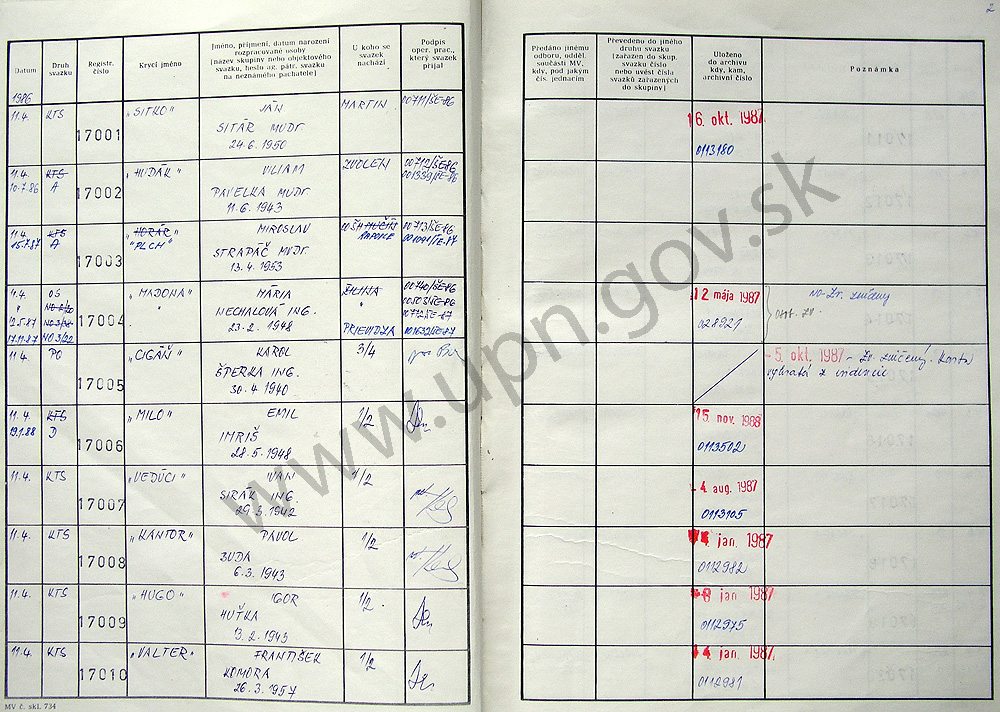 2
Datum
Druh svazku
Registr. číslo
Krycí jméno
Jméno, příjmení, datum narození rozpracované osoby (název skupiny nebo objektového svazku, heslo ag. pátr. svazku na neznámého pachatele)
U koho se svazek nachází
Podpis oper. prac., který svazek přijal
Předáno jinému odboru, odděl. součásti MV, kdy, pod jakým čís. jednacím
Převedeno do jiného druhu svazku (zařazen do skup. svazku číslo nebo uvést čísla svazků zařazených do skupiny)
Uloženo do archivu kdy, kam, archivní číslo
Poznámka
1986
11.4. KTS 17001 „SITKO" JÁN MARTIN 00711/ŠE-86 16. okt. 1987
SITÁR MUDr 0113180
24.6.1950
11.4. KTS 17002 „HUDÁK" VILIAM ZVOLEN 00712/ŠE-86
10.7.86 A PAVELKA MUDr 001339/ŠE-86
11.6.1943
11.4. KTS 17003 „HORÁR" MIROSLAV 00713/ŠE-86
15.7.87 A "PLCH" STRAPÁČ MUDr. 001091/ŠE-87
13.4.1953
11.4. OS 17004 „MADONA" MÁRIA ŽILINA 00740/ŠE-86 12 mája 1987
NECHALOVÁ ING. 028921
17.11.87 NO 3/22 23.2.1948 PRIEVIDZA
11.4. PO 17005 „CIGÁŇ" KAROL 3/4 - 5. okt. 1987 - Zv. zničený. Karta
ŠPERKA ING. vybratá z evidencie
30.4.1940
11.4. KTS 17006 „MILO" EMIL 1/2 15 nov. 1988
19.1.88 D IMRIŠ 0113502
28.5.1948
11.4. KTS 17007 „VEDÚCI" IVAN 1/2 - 4 aug. 1987
SIRÁK ING. 0113105
29.3.1942
11.4. KTS 17008 „KANTOR" PAVOL 1/2 jan. 1987
BUDA 0112982
6.3.1943
11.4. KTS 17009 „HUGO" IGOR 1/2. 8 jan 1987
HUŤKA 0112975
13.2.1943
11.4. KTS 17010 „VALTER" FRANTIŠEK 1/2 14 jan. 1987
KOMORA 0112981
26.3.1957
MV č. skl. 734
www.upn.gov.sk